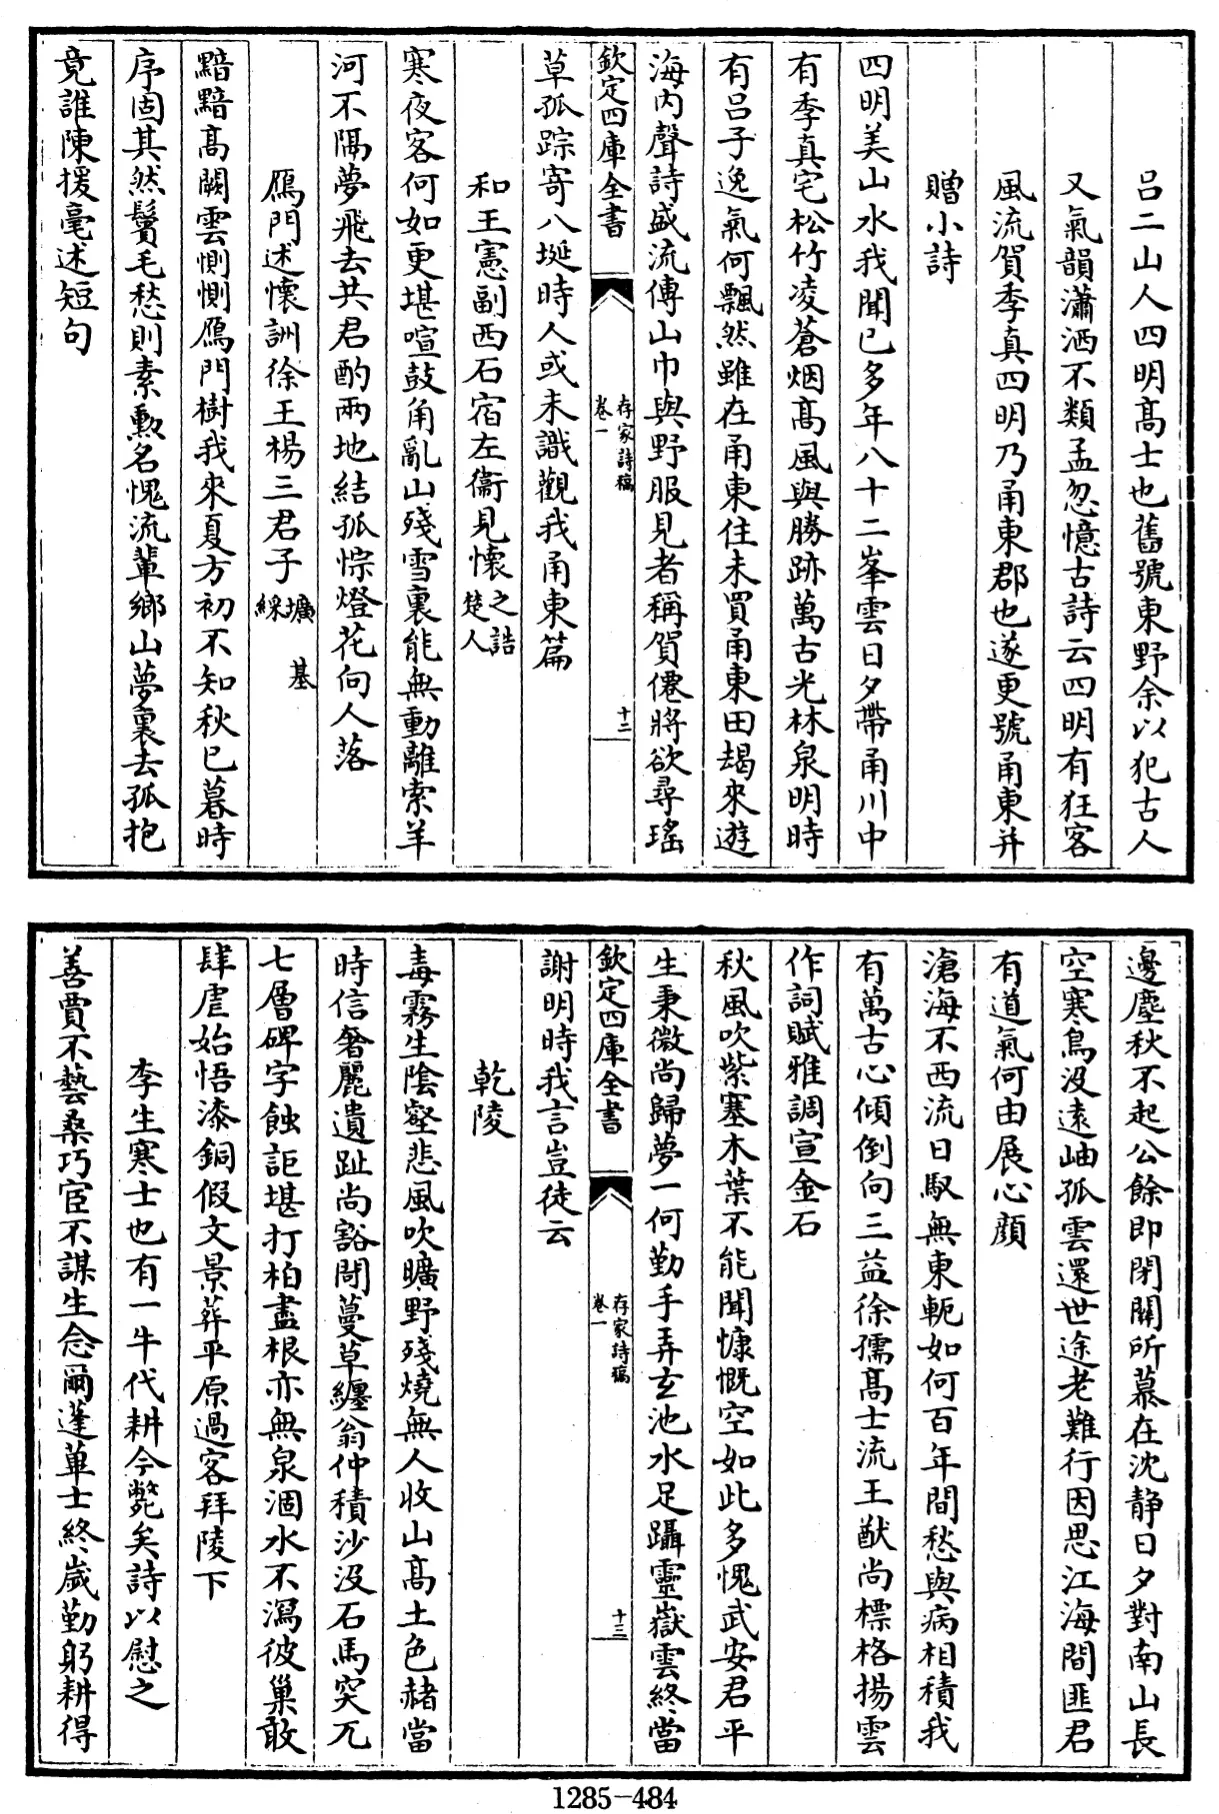 吕二山人四明髙士也舊號東野余以犯古人
又氣韻瀟洒不類孟忽憶古詩云四明有狂客
風流賀季真四明乃甬東郡也遂更號甬東并
贈小詩
四明美山水我聞已多年八十二峯雲日夕帶甬川中
有季真宅松竹凌蒼烟髙風與勝跡萬古光林泉明時
有吕子逸氣何飄然雖在甬東住未買甬東田朅來遊
海内聲詩盛流傳山巾與野服見者稱賀僊將欲尋瑤
欽定四庫全書
存家詩稿
卷一
十二
草孤踪寄八埏時人或未識觀我甬東篇
和王憲副西石宿左衞見懷之誥
楚人
寒夜客何如更堪喧鼓角亂山殘雪裏能無動離索羊
河不隔夢飛去共君酌兩地結孤悰燈花向人落
鴈門述懷詶徐王楊三君子 壙 基
綵
黯黯髙闕雲惻惻鴈門樹我來夏方初不知秋已暮時
序固其然鬢毛愁則素勲名愧流輩鄉山夢裏去孤抱
竟誰陳援毫述短句
邊塵秋不起公餘即閉關所慕在沈静日夕對南山長
空寒鳥没遠岫孤雲還世途老難行因思江海間匪君
有道氣何由展心顔
滄海不西流日馭無東軛如何百年間愁與病相積我
有萬古心傾倒向三益徐孺髙士流王猷尚標格揚雲
作詞賦雅調宣金石
秋風吹紫塞木葉不能聞慷慨空如此多愧武安君平
生秉微尚歸夢一何勤手弄玄池水足躡靈嶽雲終當
欽定四庫全書
存家詩稿
卷一
十三
謝明時我言豈徒云
乾陵
毒霧生陰壑悲風吹曠野殘燒無人收山髙土色赭當
時信奢麗遺趾尚豁閜蔓草纏翁仲積沙没石馬突兀
七層碑字蝕詎堪打柏盡根亦無泉涸水不瀉彼巢敢
肆虐始悟漆銅假文景葬平原過客拜陵下
李生寒士也有一牛代耕今斃矣詩以慰之
善賈不藝桑巧宦不謀生念爾蓬蓽士終歳勤躬耕得
1285-484